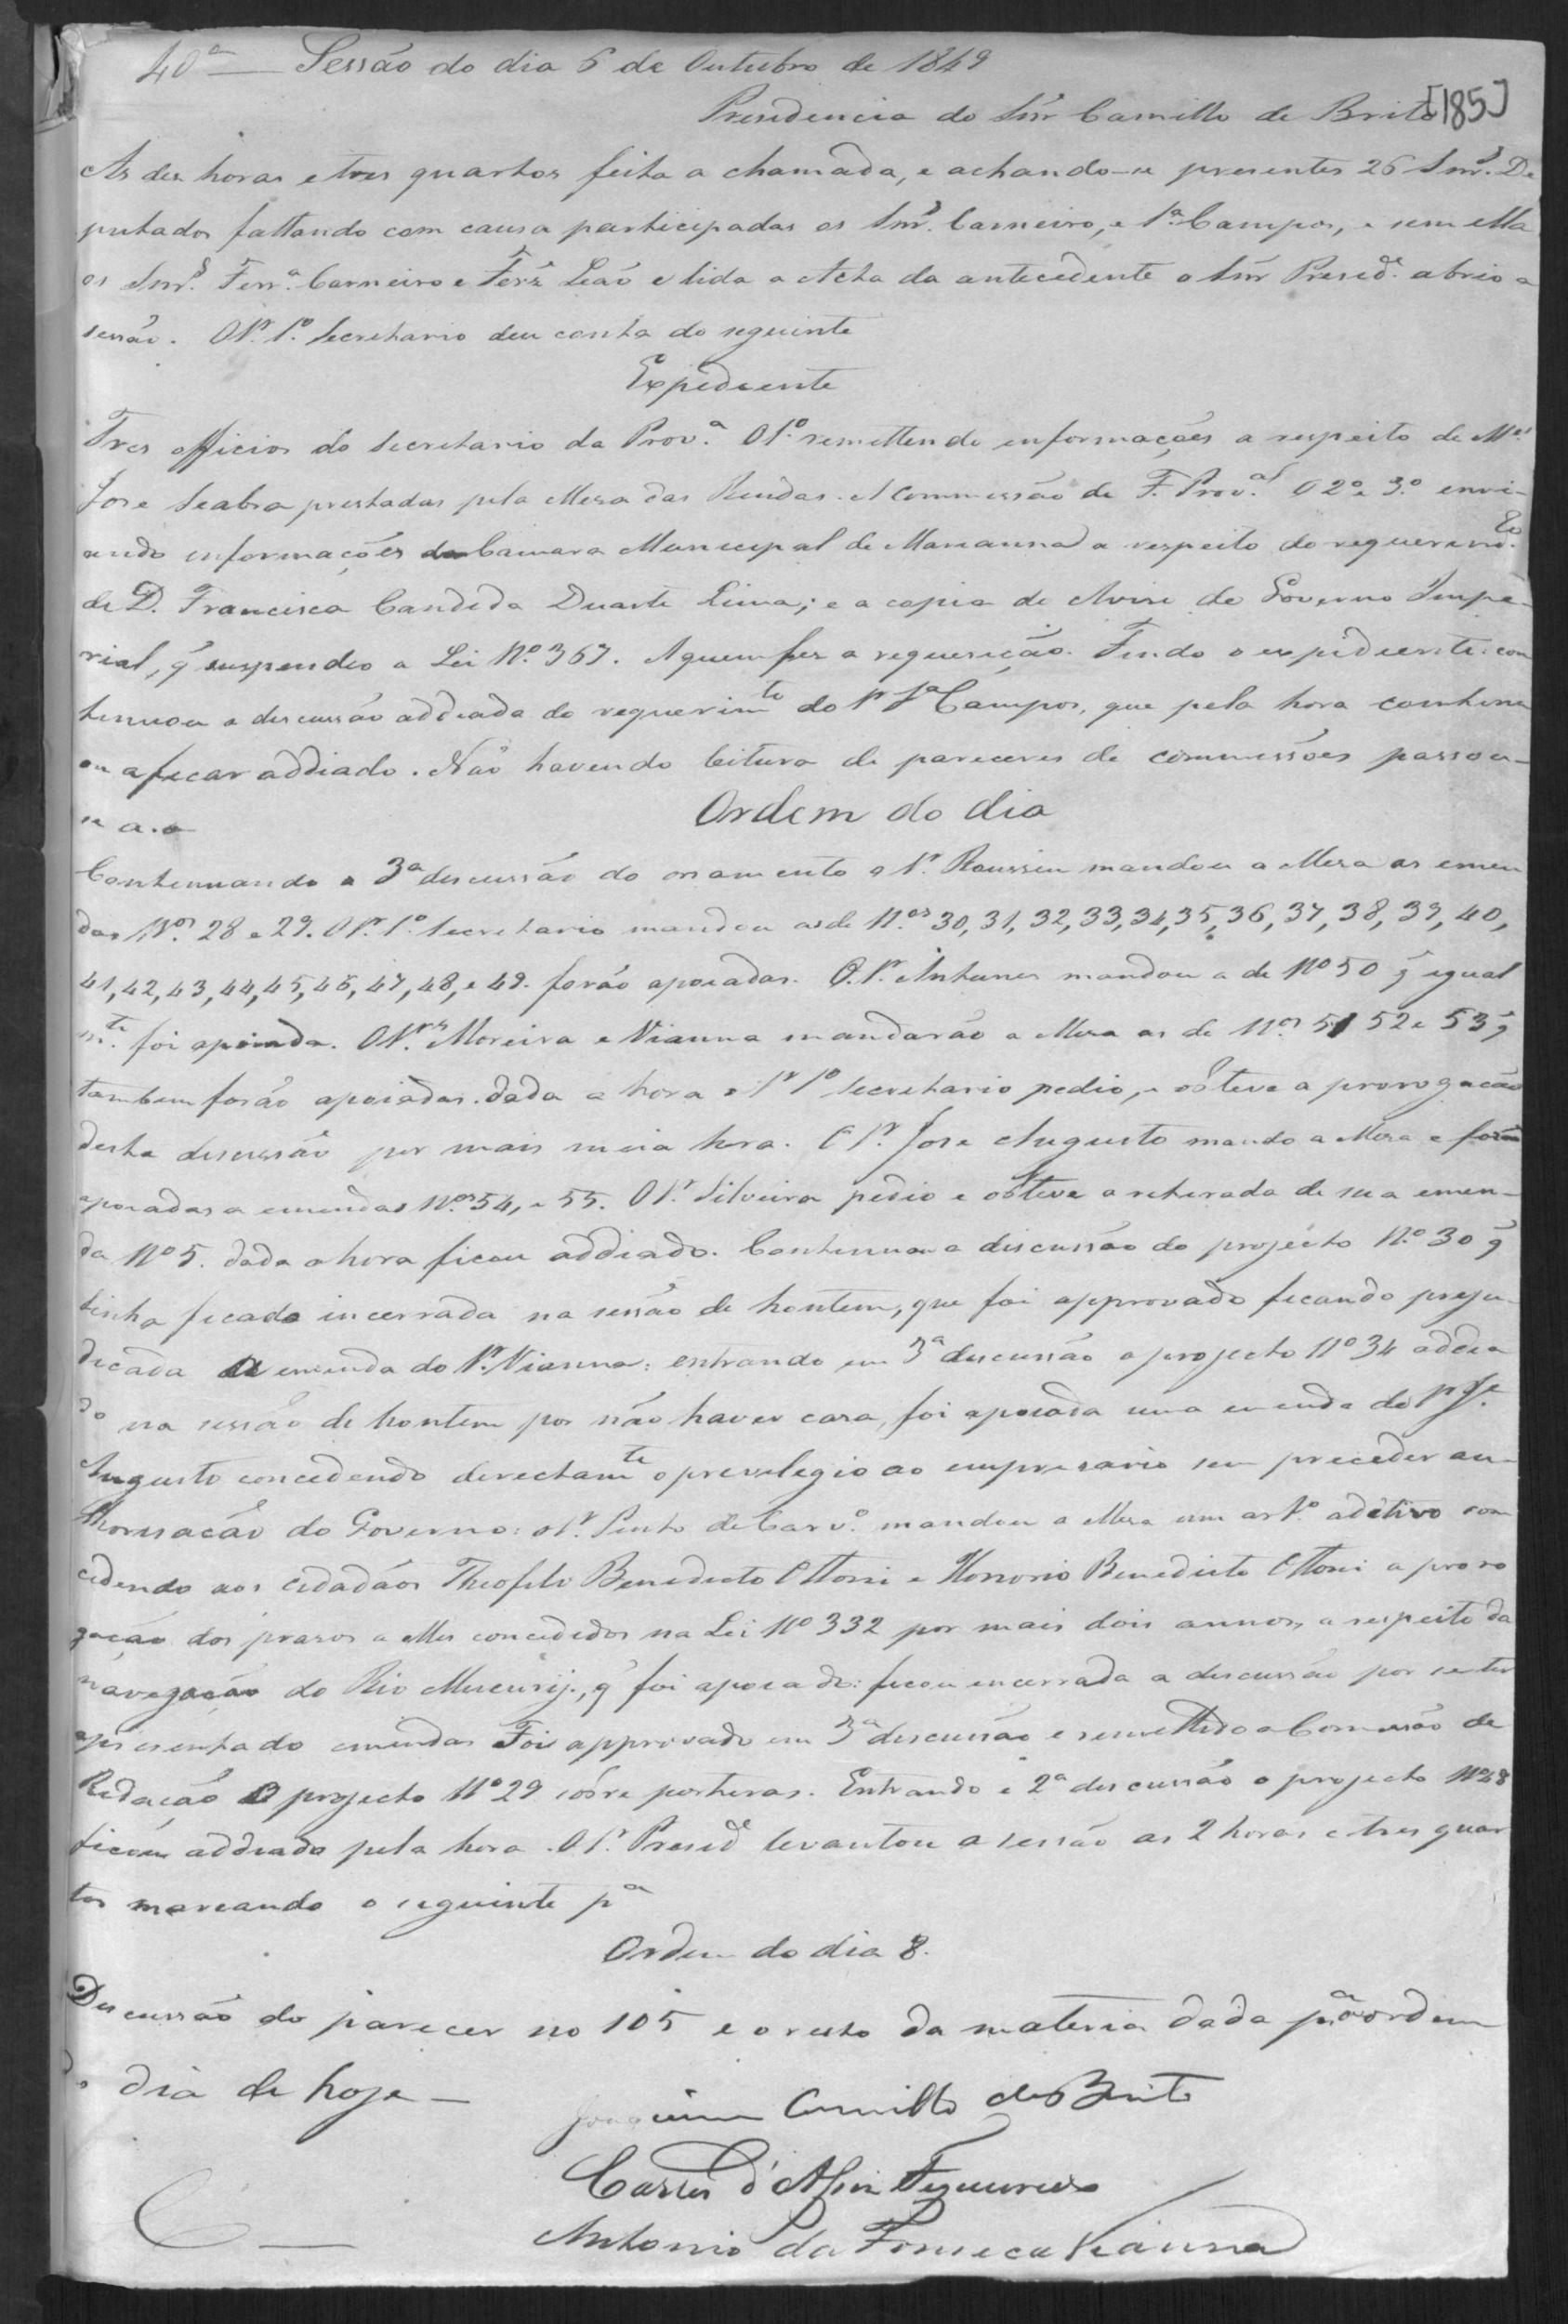 40ª — Sessão do dia 6 de Outubro de 1849
Presidencia do Snr Camillo de Brito [185]
As dez horas e tres quartos feita a chamada, e achando-se presentes 26 Snrs. De
putados faltando com causa participadas os Snrs. Carneiro, e Sª Campos, e sem ella
os Snrs. Ferrª. Carneiro e Ferz Leão e lida a Acta da antecedente o Snr Presid.e abrio a
sessão. O Sr. 1º. Secretario deu conta do seguinte
Expediente
Tres officios do Secretario da Prov.ª O 1º. remettendo enformações a respeito de M.el
Jose Seabra prestadas pela Mesa das Rendas. A Commissão de F. Prov.al O 2º e 3.º envi-
ando enformações da Camara Municipal de Marianna a respeito do requerim.to
de D. Francisca Candida Duarte Lima; e a copia de Aviso do Governo Impe-
rial, q̃ suspendeo a Lei Nº. 367. A quem fez a requesição. Findo o expediente con
tinuou a discussão addiada do requerim.to do Sr Sª Campos, que pela hora continu
ou a ficar addiado. Não havendo leitura de pareceres de commissões passou-
se a. o
Ordem do dia
Continuando a 3ª discussão do orsamento o Sr. Roussin mandou a Mesa as emen
das Nos. 28 e 29. O Sr. 1º. Secretario mandou as de Nos. 30, 31, 32, 33, 34, 35, 36, 37, 38, 39, 40,
41, 42, 43, 44, 45, 46, 47, 48, e 49. forão apoiadas. O Sr. Antunes mandou a de Nº 50 q̃ igual
m.te foi apoiada. O Srs. Moreira e Vianna mandarão a Mesa as de Nos. 51 52 e 53 q̃
tambem forão apoiadas. dada a hora o Sr 1º Secretario pedio, e obteve a prorogação
desta discussão por mais meia hora. O Sr. Jose Augusto mando a Mesa e forão
apoiadas a emendas Nos. 54, e 55. O Sr. Silveira pedio e obteve a retirada de sua emen-
da Nº 5. dada a hora ficou addiado. Continuou a discussão do projecto Nº. 30 q̃
tinha ficado incerrada na sessão de hontem, que foi approvado ficando preju-
dicada a emenda do Sr. Vianna: entrando em 3ª discussão o projecto Nº 34 addia
do na sessão de hontem por não haver casa, foi apoiada uma emenda do Sr Je.
Augusto concedendo derectam.te o previlegio ao empresario sem preceder au-
thorisação do Governo: o Sr. Pinto de Carv.º mandou a Mesa um artº. aditivo con
cedendo aos cidadãos Theofilo Benedicto Ottoni e Honorio Benedicto Ottoni a proro
gação dos prasos a elles concedidos na Lei Nº 332 por mais dois annos, a respeito da
navegação do Rio Mucurij, q̃ foi apoiado: ficou encerrada a discussão por se ter
apresentado emendas Foi approvado em 3ª discussão e remettido a Comissão de
Redação O projecto Nº 29 sobre porteras. Entrando ẽ 2ª discussão o projecto Nº 28
ficou addiado pela hora. O Sr. Presid.e levantou a sessão as 2 horas e tres quar
tos marcando o seguinte pª
Ordem do dia 8.
Discussão do parecer no 105 e o resto da materia dada pª a ordem
do dia de hoje —
Joaquim Camillo de Brito
Antonio da Fonseca Vianna